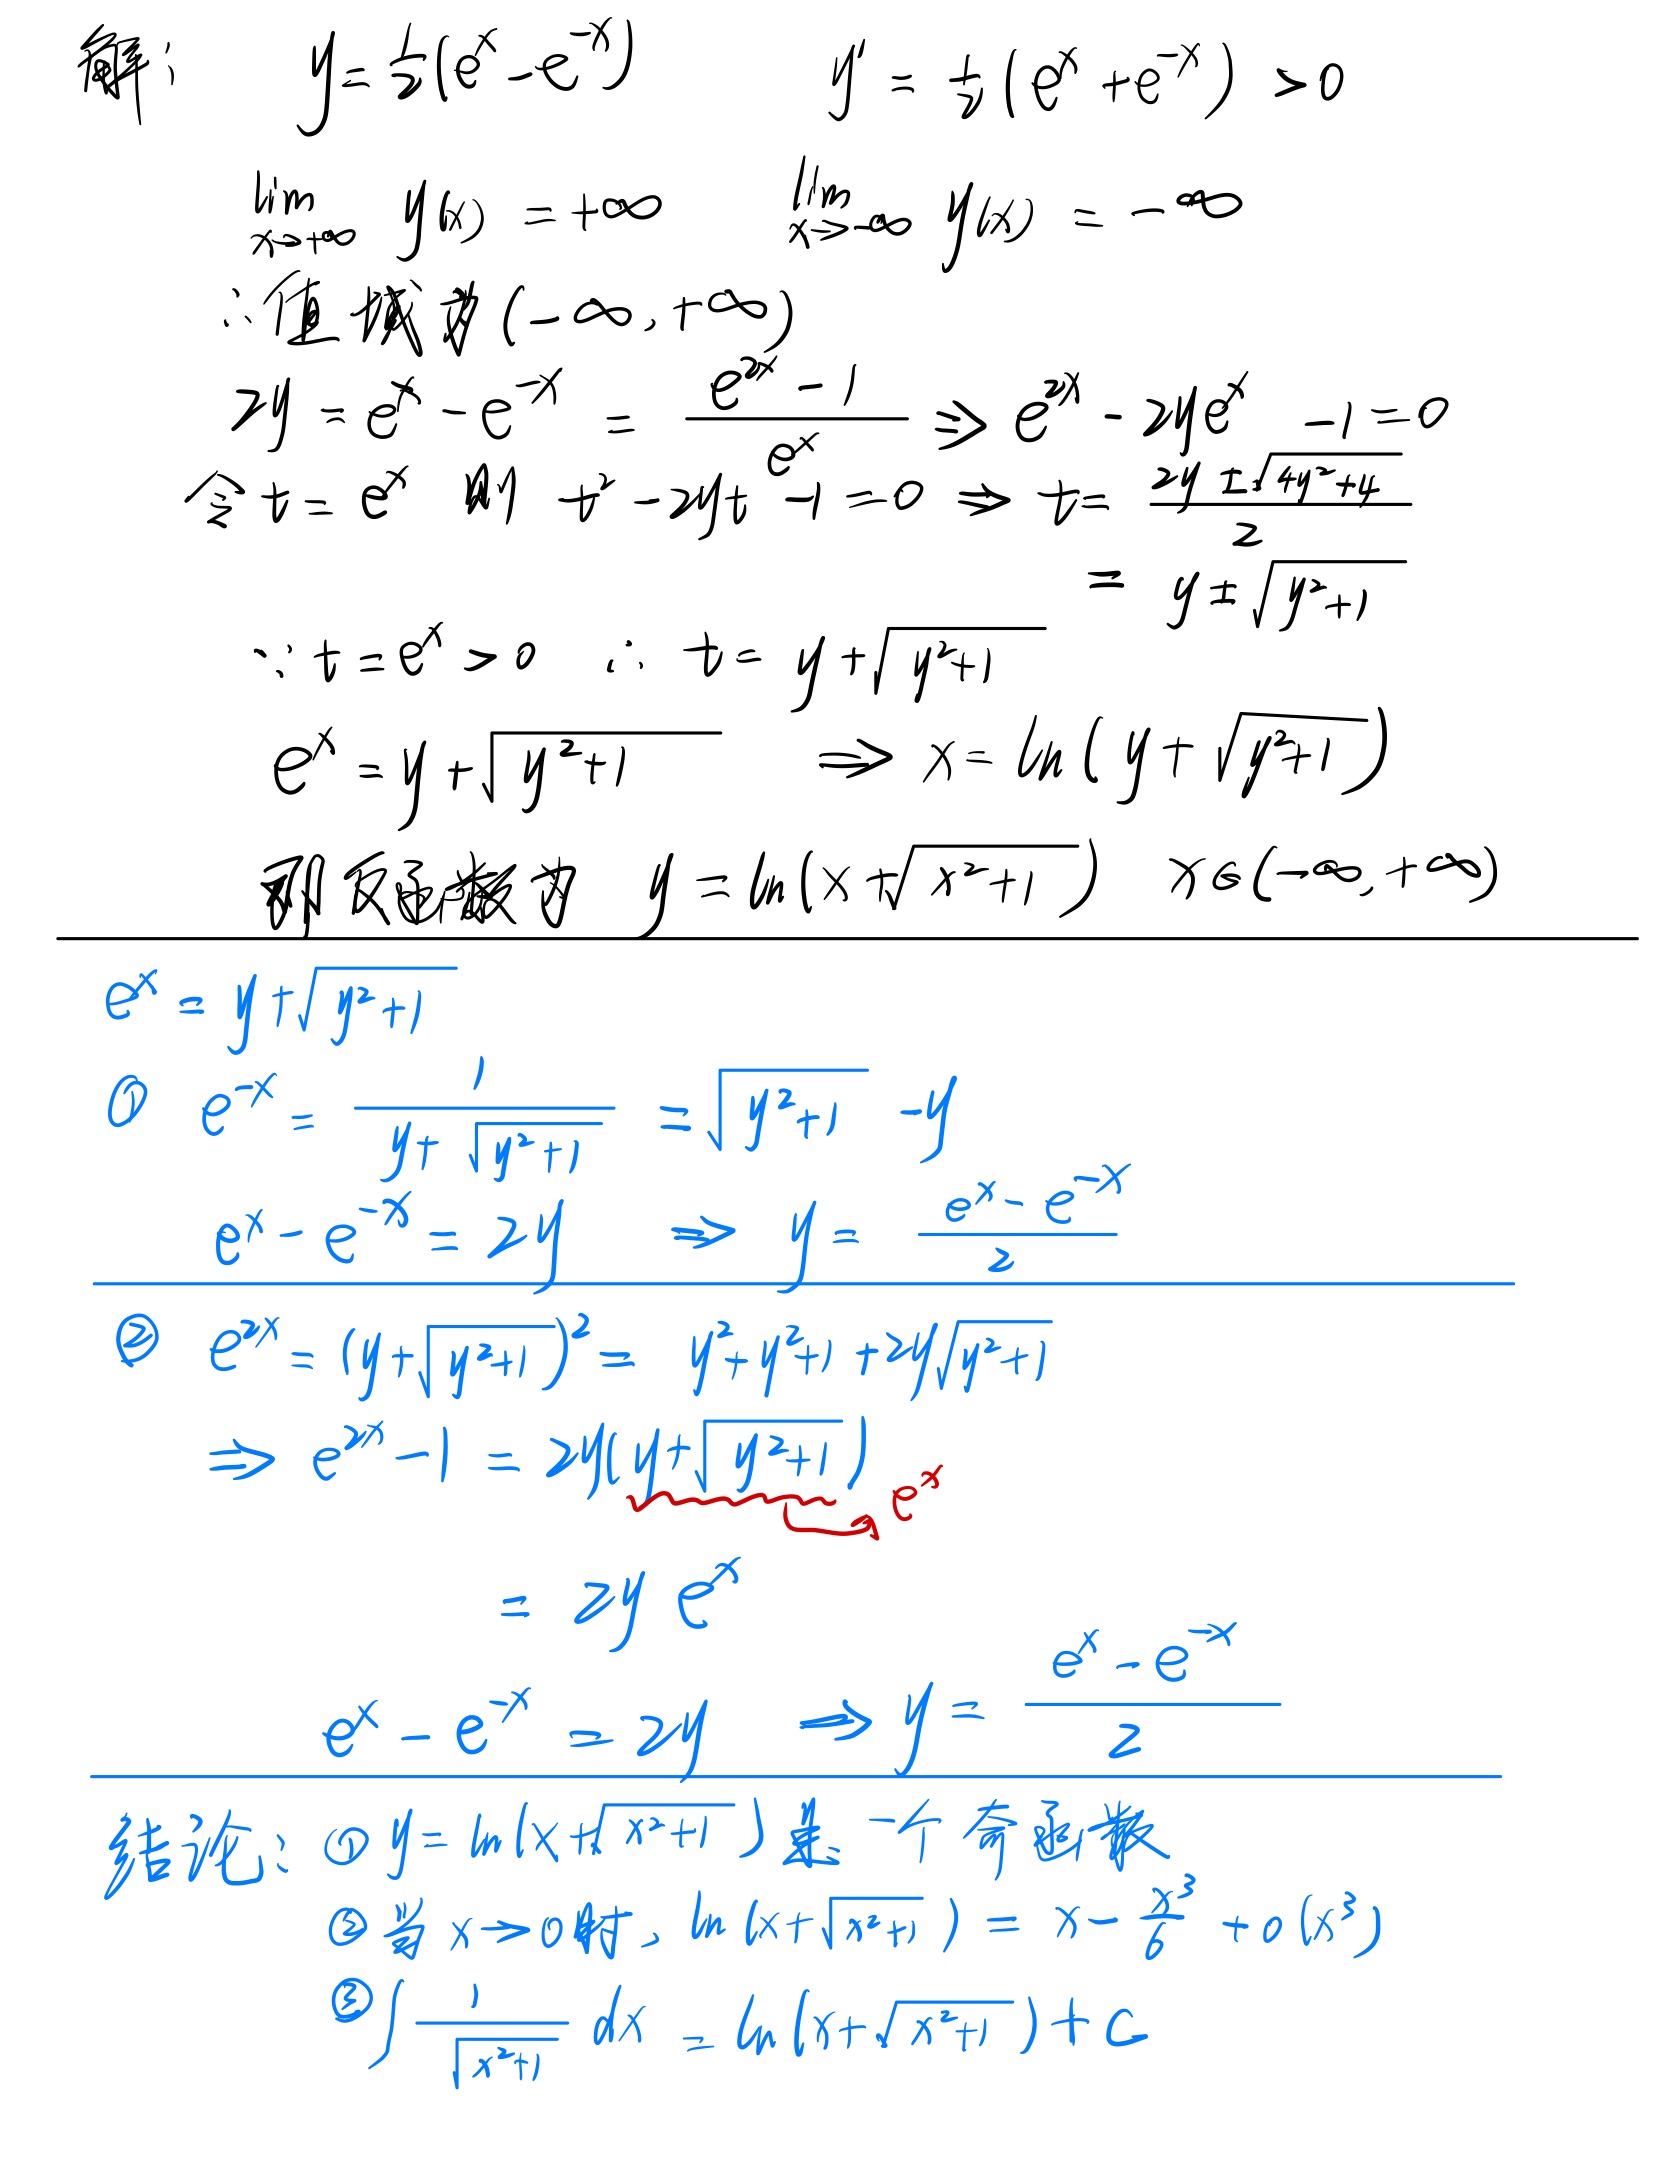 解: y = 1/2(e^x - e^{-x}) y' = 1/2(e^x + e^{-x}) > 0
lim_{x→+∞} y(x) = +∞ lim_{x→-∞} y(x) = -∞
∴值域为(-∞, +∞)
2y = e^x - e^{-x} = (e^{2x} - 1)/e^x ⇒ e^{2x} - 2ye^x - 1 = 0
令 t = e^x 则 t² - 2yt - 1 = 0 ⇒ t = (2y ± √(4y²+4))/2
= y ± √(y²+1)
∵ t = e^x > 0 ∴ t = y + √(y²+1)
e^x = y + √(y²+1) ⇒ x = ln(y + √(y²+1))
即反函数为 y = ln(x + √(x²+1)) x∈(-∞, +∞)
e^x = y + √(y²+1)
① e^{-x} = 1/(y + √(y²+1)) = √(y²+1) - y
e^x - e^{-x} = 2y ⇒ y = (e^x - e^{-x})/2
② e^{2x} = (y + √(y²+1))² = y² + y² + 1 + 2y√(y²+1)
⇒ e^{2x} - 1 = 2y(y + √(y²+1))
e^x
= 2y e^x
e^x - e^{-x} = 2y ⇒ y = (e^x - e^{-x})/2
结论: ① y = ln(x + √(x²+1)) 是一个奇函数
② 当 x→0时, ln(x + √(x²+1)) = x - x³/6 + o(x³)
③ ∫ 1/√(x²+1) dx = ln(x + √(x²+1)) + C